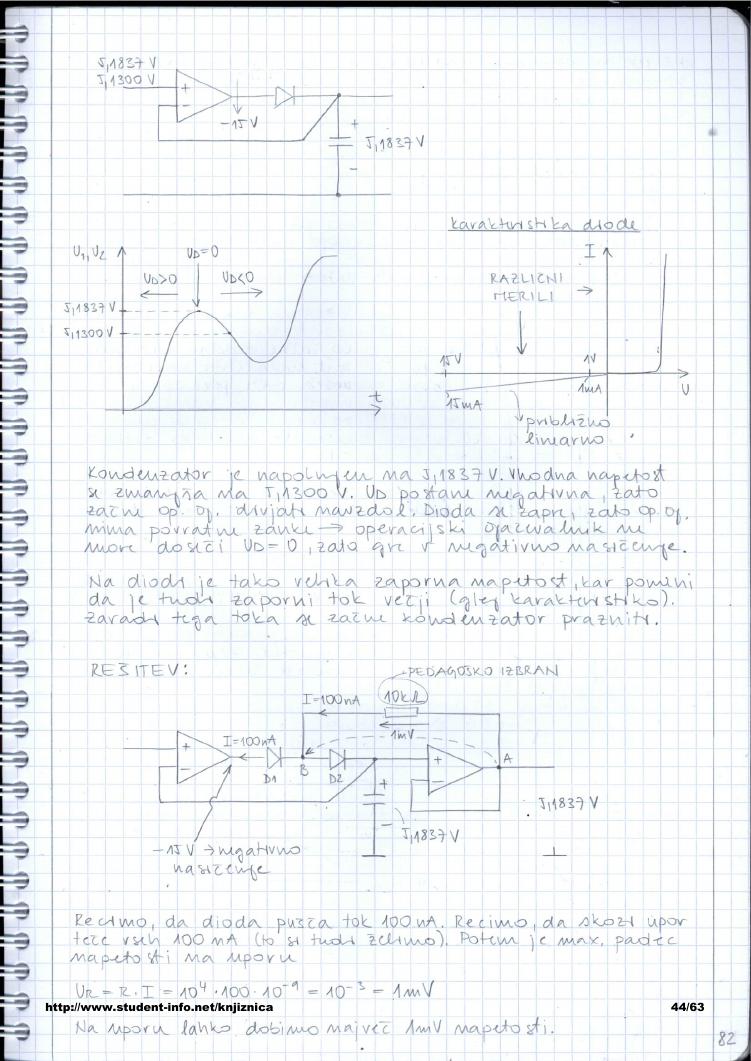 5,1837 V
5,1300 V
+
−
-15 V
+
5,1837 V
−
karakteristika diode
U1, U2
UD=0
UD>0
UD<0
5,1837 V
5,1300 V
t
I
RAZLIČNI
MERILI →
15V
1V
15mA
1mA
U
približno
linearno
Kondenzator je napolnjen na 5,1837 V. Vhodna napetost
se zmanjša na 5,1300 V. UD postane negativna, zato
začne op. oj. drvjati navzdol. Dioda se zapre, zato op. oj.
nima povratne zanke → operacijski ojačevalnik ne
more doseči UD=0, zato gre v negativno nasičenje.
Na diodi je tako velika zaporna napetost, kar pomeni
da je tudi zaporni tok večji (glej karakteristiko).
Zaradi tega toka se začne kondenzator prazniti.
REŠITEV:
PEDAGOŠKO IZBRAN
I=100nA
10kΩ
1mV
I=100nA
+
−
D1
B
D2
+
−
A
+
−
5,1837 V
5,1837 V
-15 V → negativno
nasičenje
Recimo, da dioda pušča tok 100 nA. Recimo, da skozi upor
teče vseh 100 nA (to si tudi želimo). Potem je max. padec
napetosti na uporu
UR = R · I = 10⁴ · 100 · 10⁻⁹ = 10⁻³ = 1mV
http://www.student-info.net/knjiznica
44/63
Na uporu lahko dobimo največ 1mV napetosti.
82